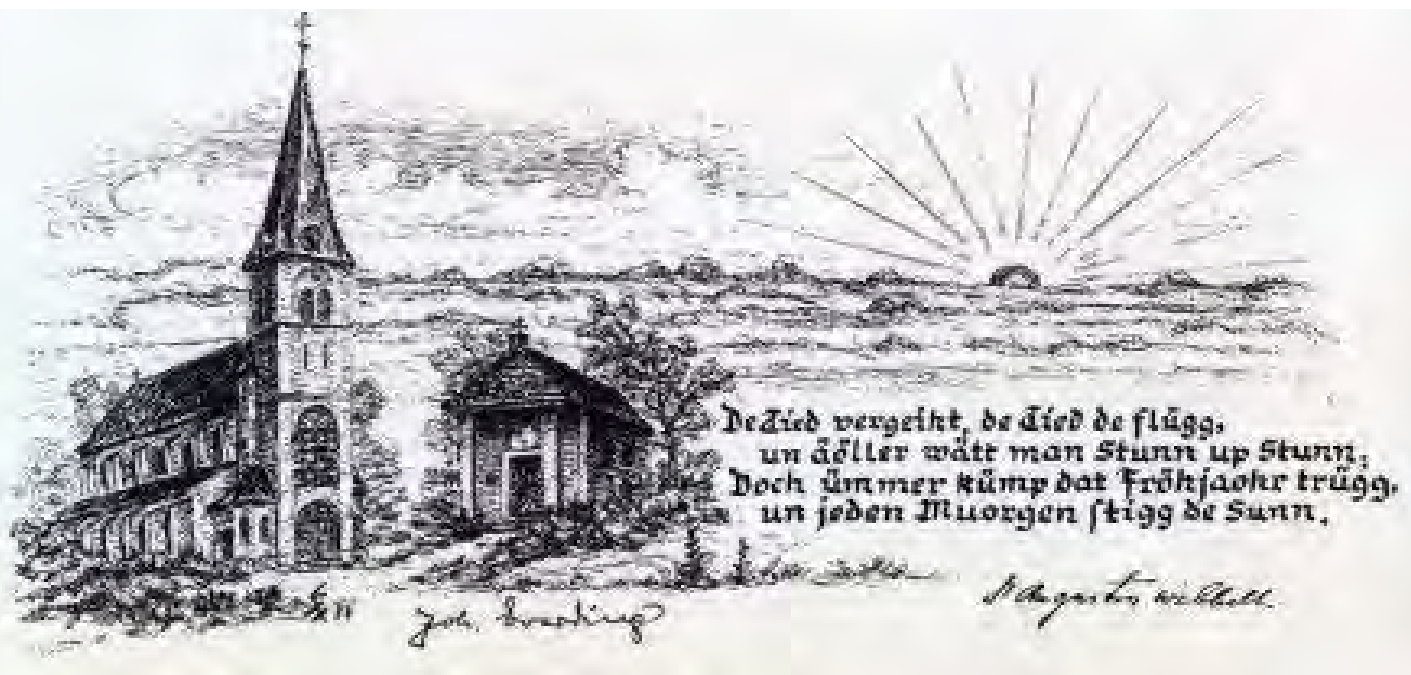 De Tied vergeiht, de Tied de flügg,
un äöller wätt man Stunn up Stunn,
Doch ümmer kümp dat Fröhjaohr trügg,
un jeden Muorgen stigg de Sunn.
Augustin Wibbelt.
Joh.